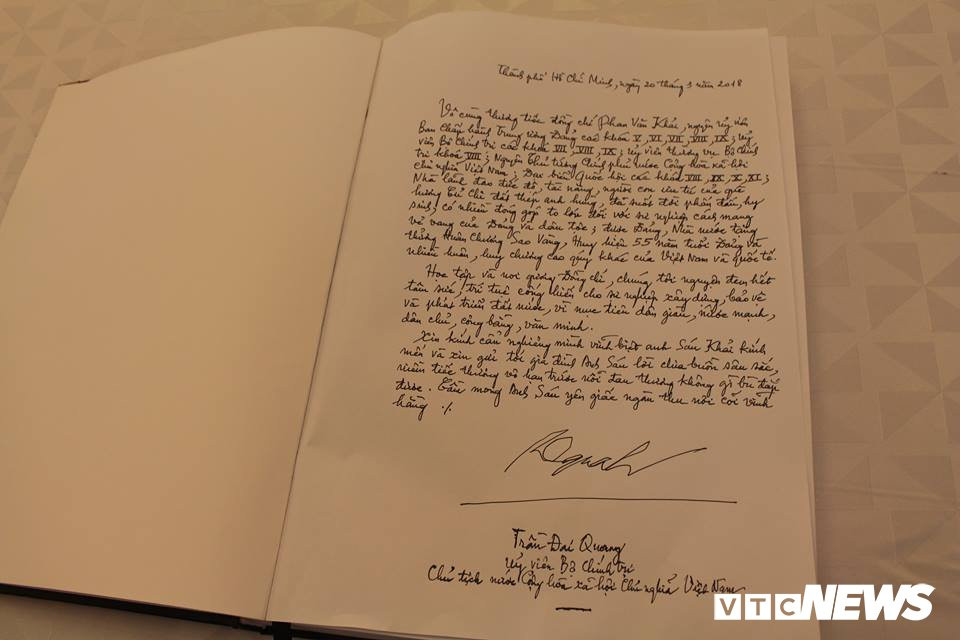 Thành phố Hồ Chí Minh, ngày 20 tháng 3 năm 2018
Vô cùng thương tiếc đồng chí Phan Văn Khải, nguyên Ủy viên
Ban Chấp hành Trung ương Đảng các khóa V, VI, VII, VIII, IX; Ủy
viên Bộ Chính trị các khóa VII, VIII, IX; Ủy viên thường vụ Bộ Chính
trị khóa VIII; Nguyên Thủ tướng Chính phủ nước Cộng hòa xã hội
chủ nghĩa Việt Nam; Đại biểu Quốc hội các khóa VIII, IX, X, XI;
Nhà lãnh đạo đức độ, tài năng, người con ưu tú của quê
hương Củ Chi đất thép anh hùng, đã suốt đời phấn đấu, hy
sinh; có nhiều đóng góp to lớn đối với sự nghiệp cách mạng
vẻ vang của Đảng và dân tộc; được Đảng, Nhà nước tặng
thưởng Huân chương Sao Vàng, Huy hiệu 55 năm tuổi Đảng và
nhiều huân, huy chương cao quý khác của Việt Nam và quốc tế.
Học tập và noi gương Đồng chí, chúng tôi nguyện đem hết
tâm sức, trí tuệ cống hiến cho sự nghiệp xây dựng, bảo vệ
và phát triển đất nước, vì mục tiêu dân giàu, nước mạnh,
dân chủ, công bằng, văn minh.
Xin kính cẩn nghiêng mình vĩnh biệt anh Sáu Khải kính
mến và xin gửi tới gia đình Anh Sáu lời chia buồn sâu sắc,
niềm tiếc thương vô hạn trước nỗi đau thương không gì bù đắp
được. Cầu mong Anh Sáu yên giấc ngàn thu nơi cõi vĩnh
hằng ./.
Trần Đại Quang
Ủy viên Bộ Chính trị
Chủ tịch nước Cộng hòa xã hội Chủ nghĩa Việt Nam
VTC NEWS